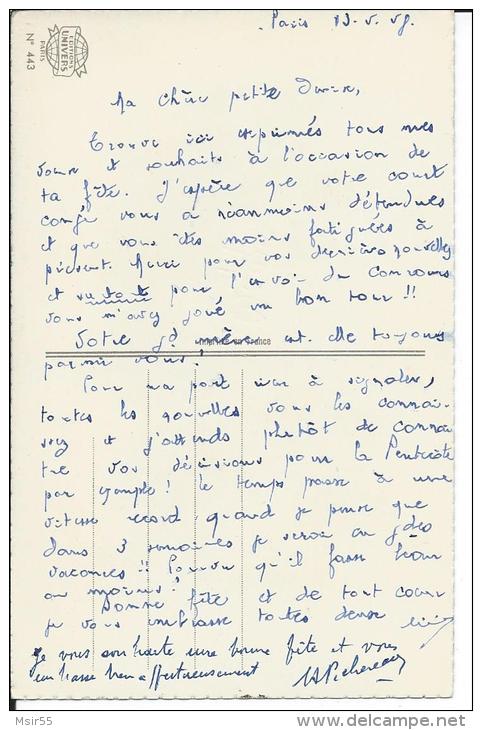 Paris 13-5-58.
EDITIONS
UNIVERS
PARIS
N° 443
Ma chère petite
Trouve ici exprimés tous mes
vœux et souhaits à l'occasion de
ta fête. J'espère que votre court
congé vous a néanmoins détendues
et que vous êtes moins fatiguées à
présent. Merci pour vos dernières nouvelles
et surtout pour l'envoi du Concours
vous m'avez joué un bon tour !!
Votre gd mère est-elle toujours
parmi vous ?
en France
Pour ma part rien à signaler,
toutes les nouvelles vous les connais-
sez et j'attends plutôt de connaî
tre vos décisions pour la Pentecôte
par exemple ! le temps passe à une
vitesse record, quand je pense que
dans 3 semaines je serai en gdes
vacances !! Pourvu qu'il fasse beau
au moins !
Bonne fête et de tout cœur
je vous embrasse toutes deux
Je vous souhaite une bonne fête et vous
embrasse bien affectueusement
Msir55
delcampe.net